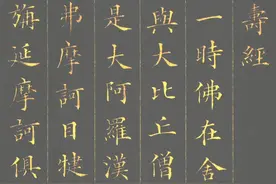 壽經
一時佛在舍
與大比丘僧
是大阿羅漢
弗摩訶目犍
旃延摩訶俱